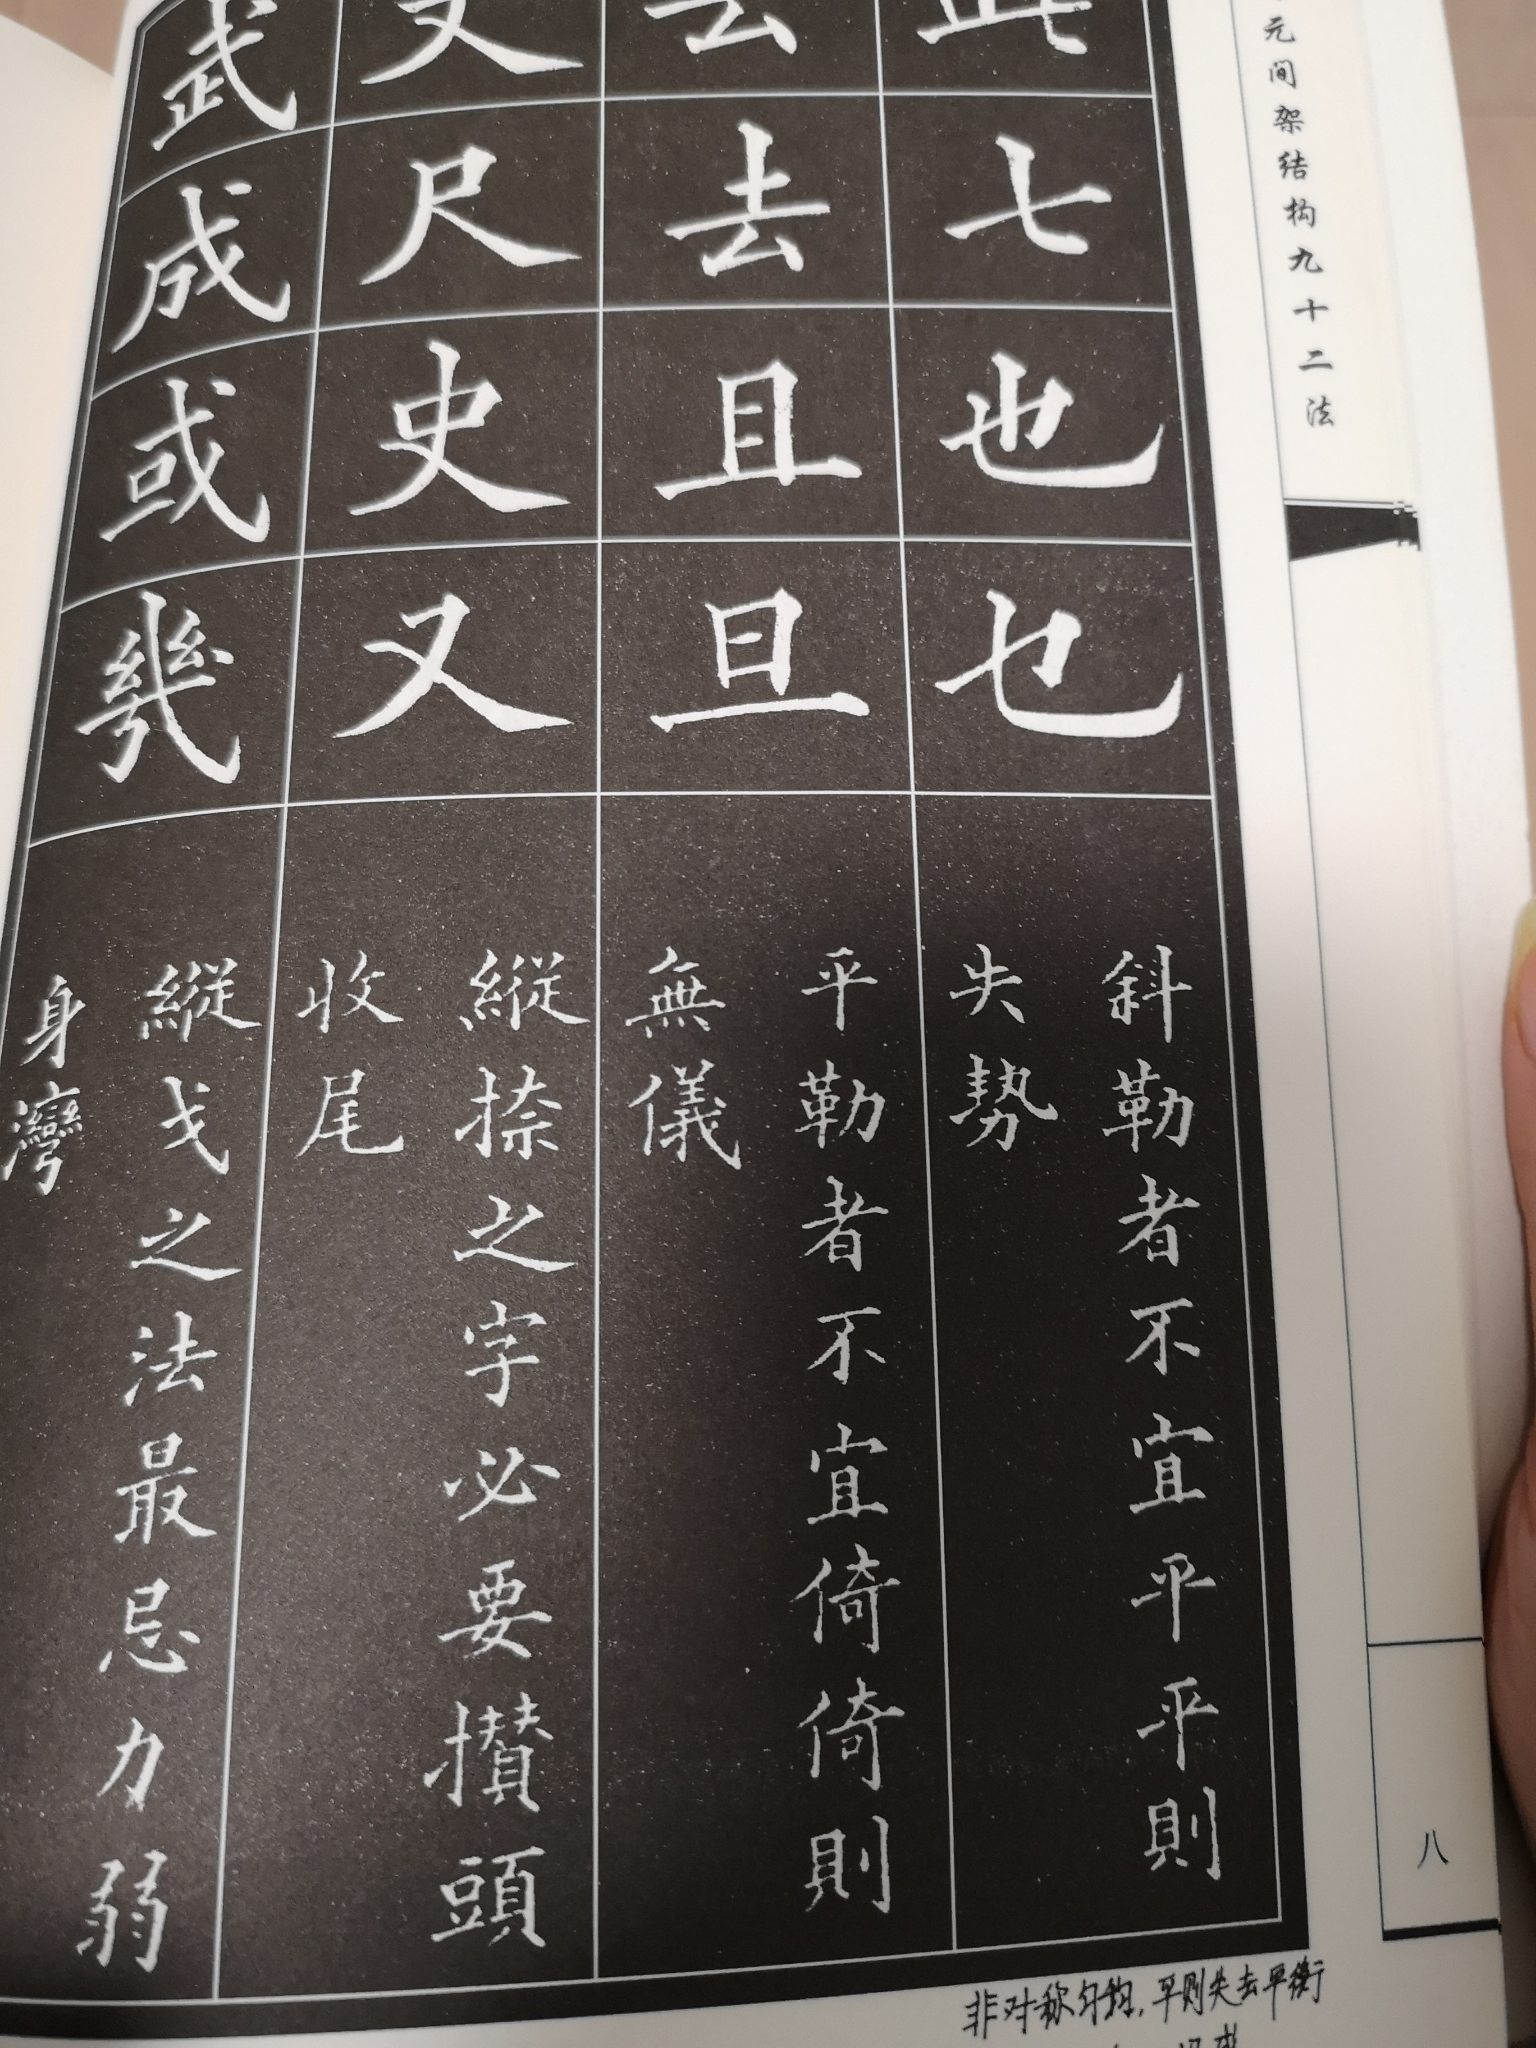 元间架结构九十二法
七也乜
斜勒者不宜平平則
失势
去且旦
平勒者不宜倚倚則
無儀
尺史又
縱捺之字必要攢頭
收尾
武成或幾
縱戈之法最忌力弱
身灣
八
非对称匀钧，平则失去平衡